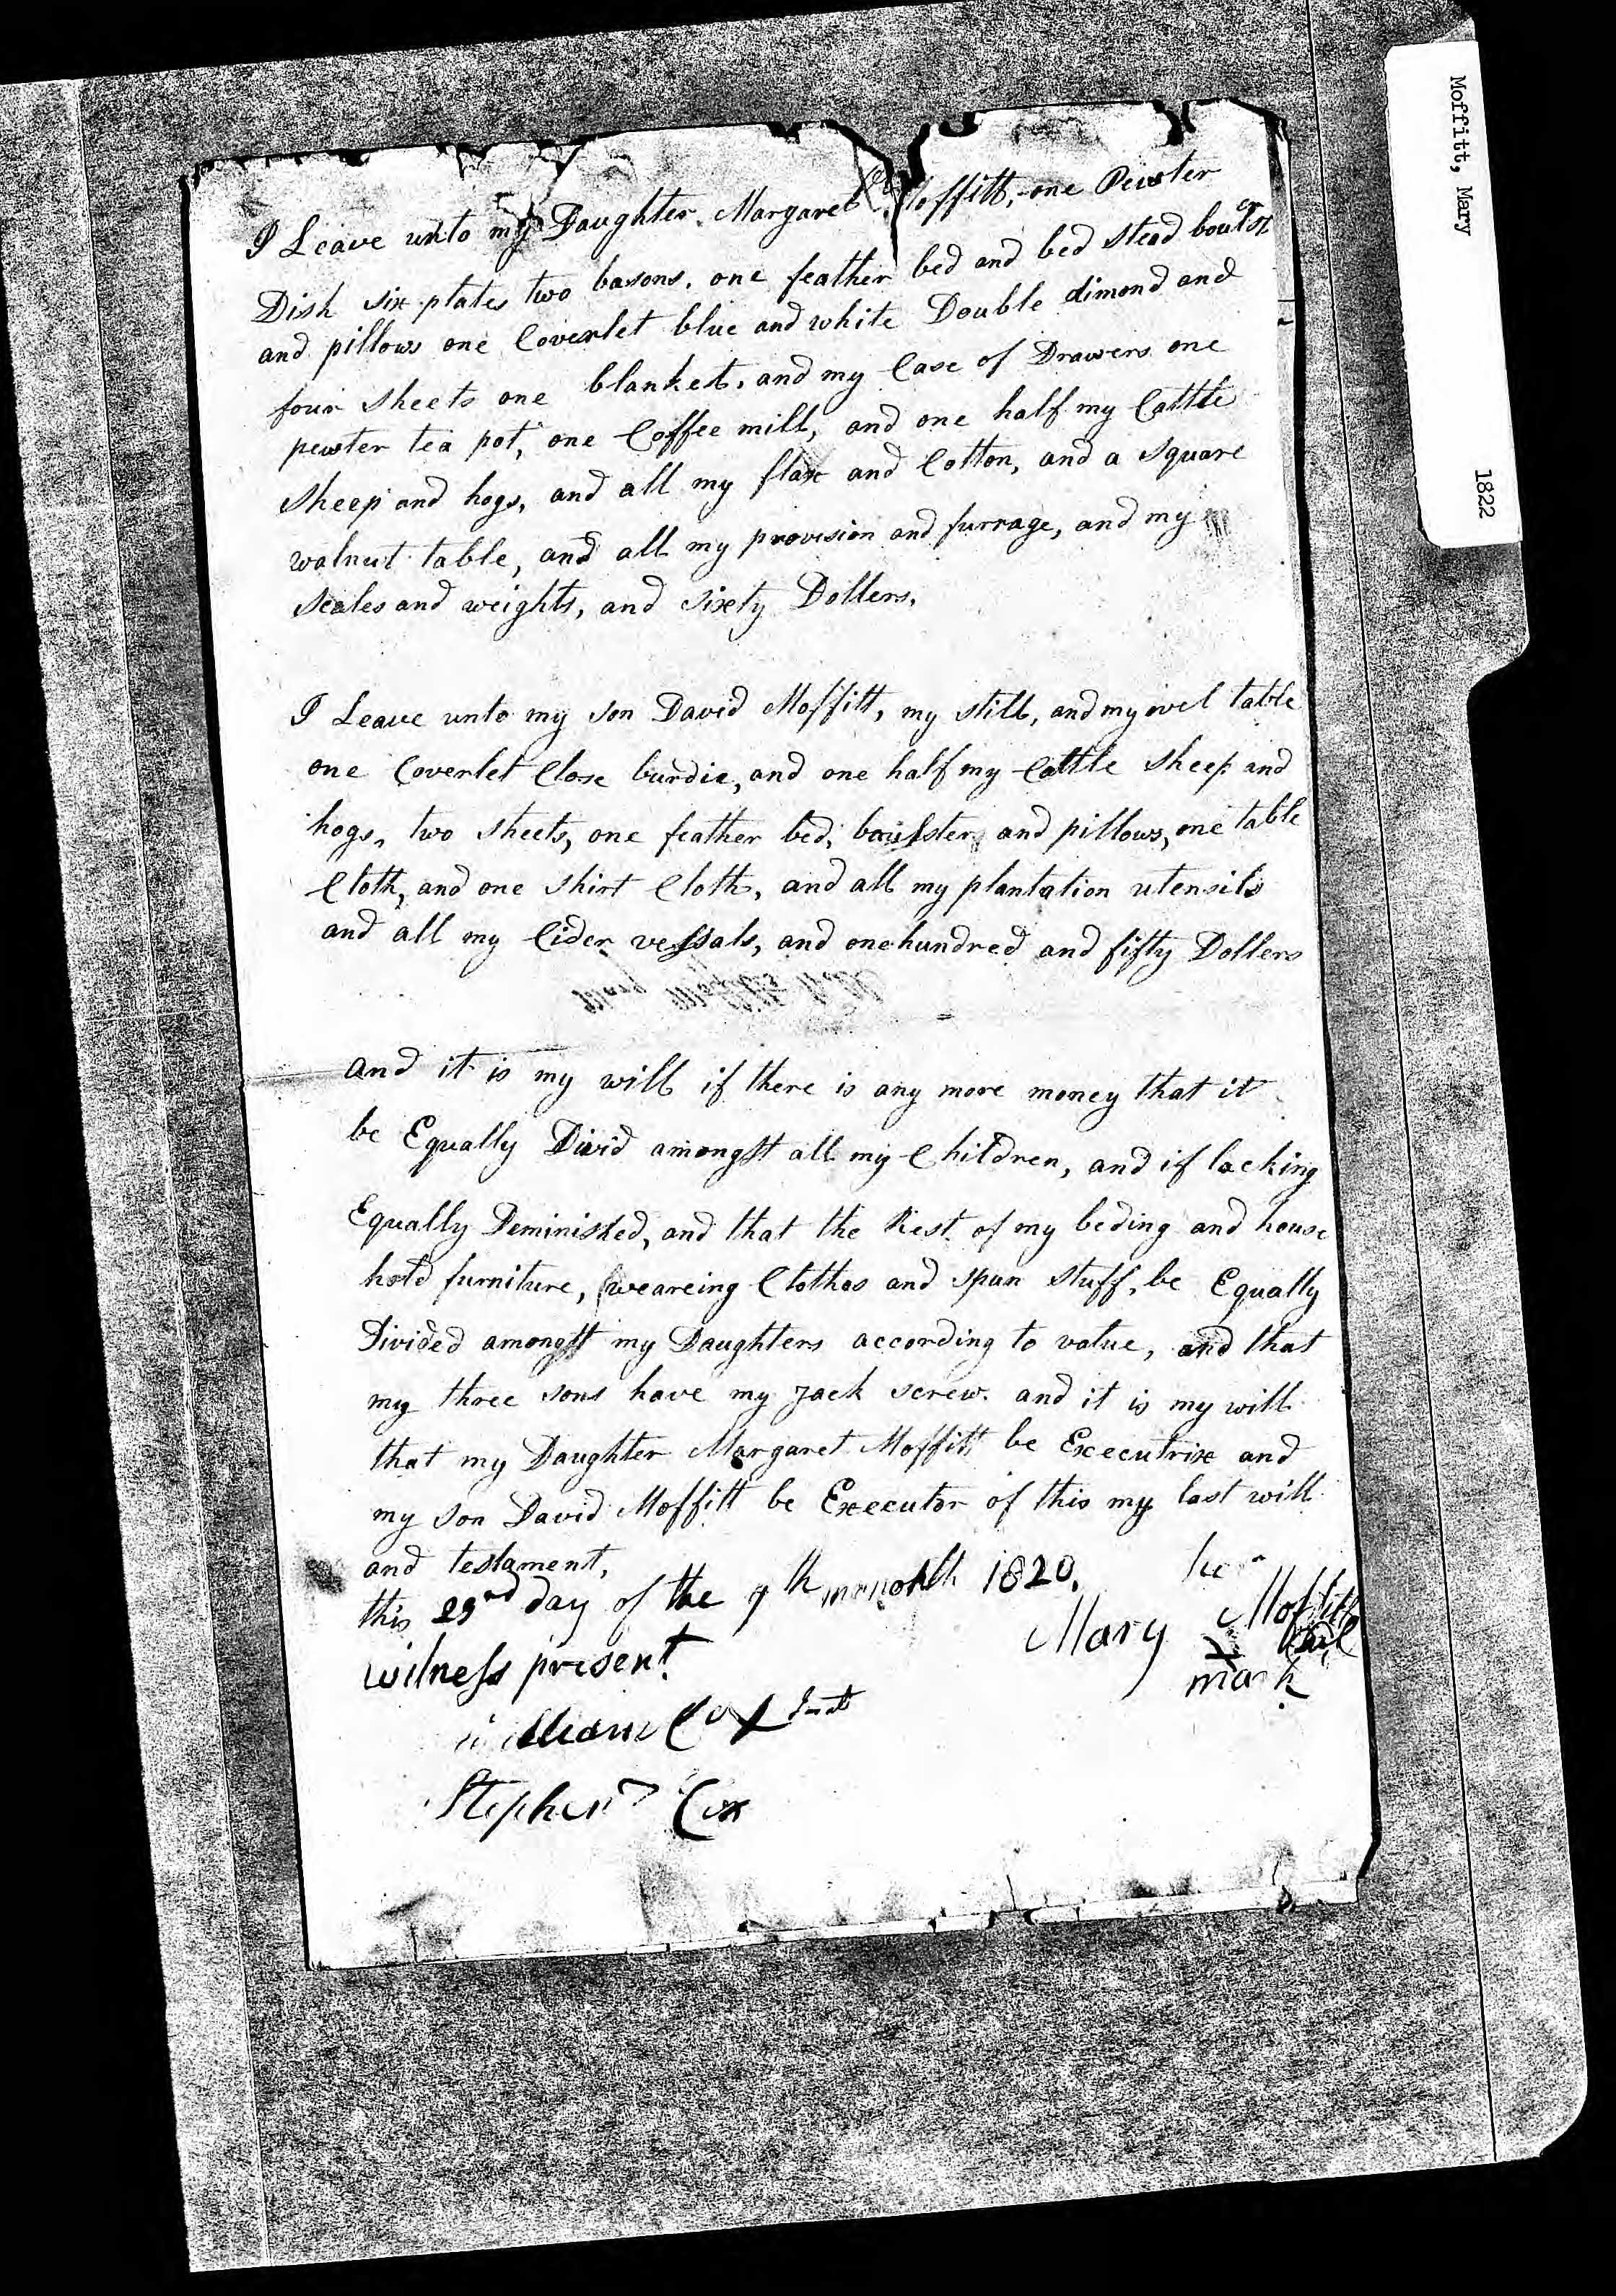 Moffitt, Mary
1822
I Leave unto my Daughter Margaret Moffitt, one Pewter
Dish six plates two basons, one feather bed and bed stead boulster
and pillows one Coverlet blue and white Double dimond and
four sheets one blanket, and my Case of Drawers one
pewter tea pot, one Coffee mill, and one half my Cattle
sheep and hogs, and all my flax and Cotton, and a square
walnut table, and all my provision and furrage, and my
scales and weights, and sixty Dollers,
I Leave unto my son David Moffitt, my still, and my ovel table
one Coverlet Close burdie, and one half my Cattle sheep and
hogs, two sheets, one feather bed, boulster and pillows, one table
Cloth, and one shirt Cloth, and all my plantation utensils
and all my Cider vessals, and one hundred and fifty Dollers
Mary Moffitts Will
and it is my will if there is any more money that it
be Equally Divid amongst all my Children, and if lacking
Equally Deminished, and that the Rest of my beding and house
hold furniture, weareing Clothes and spun stuff, be Equally
Divided amongst my Daughters according to value, and that
my three sons have my jack screw. and it is my will
that my Daughter Margaret Moffitt be Executrix and
my son David Moffitt be Executor of this my last will
and testament,
this day of the month 1820.
her
Mary Moffitt
mark
witness present
William Cox
Stephen Cox